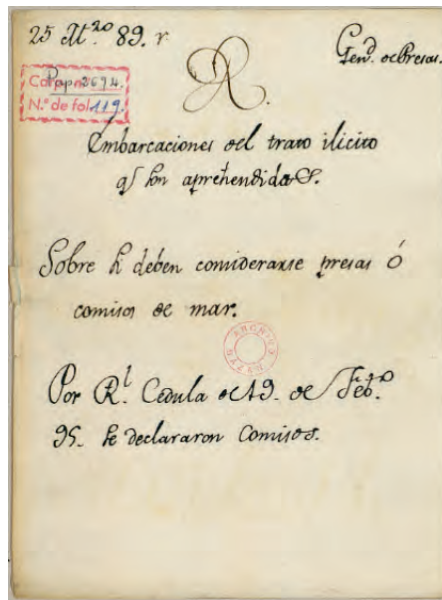 25 At.^20 89. r
Gen.^l de Presas.
R.
Cap. 2694.
N.º de fol. 119.
Embarcaciones del trato ilicito
q^s son aprehendidas.
Sobre si deben considerarse presas ó
comisos de mar.
ARCHIVO
Por R.^l Cedula de 19. de Feb.^o
95. se declararon Comisos.